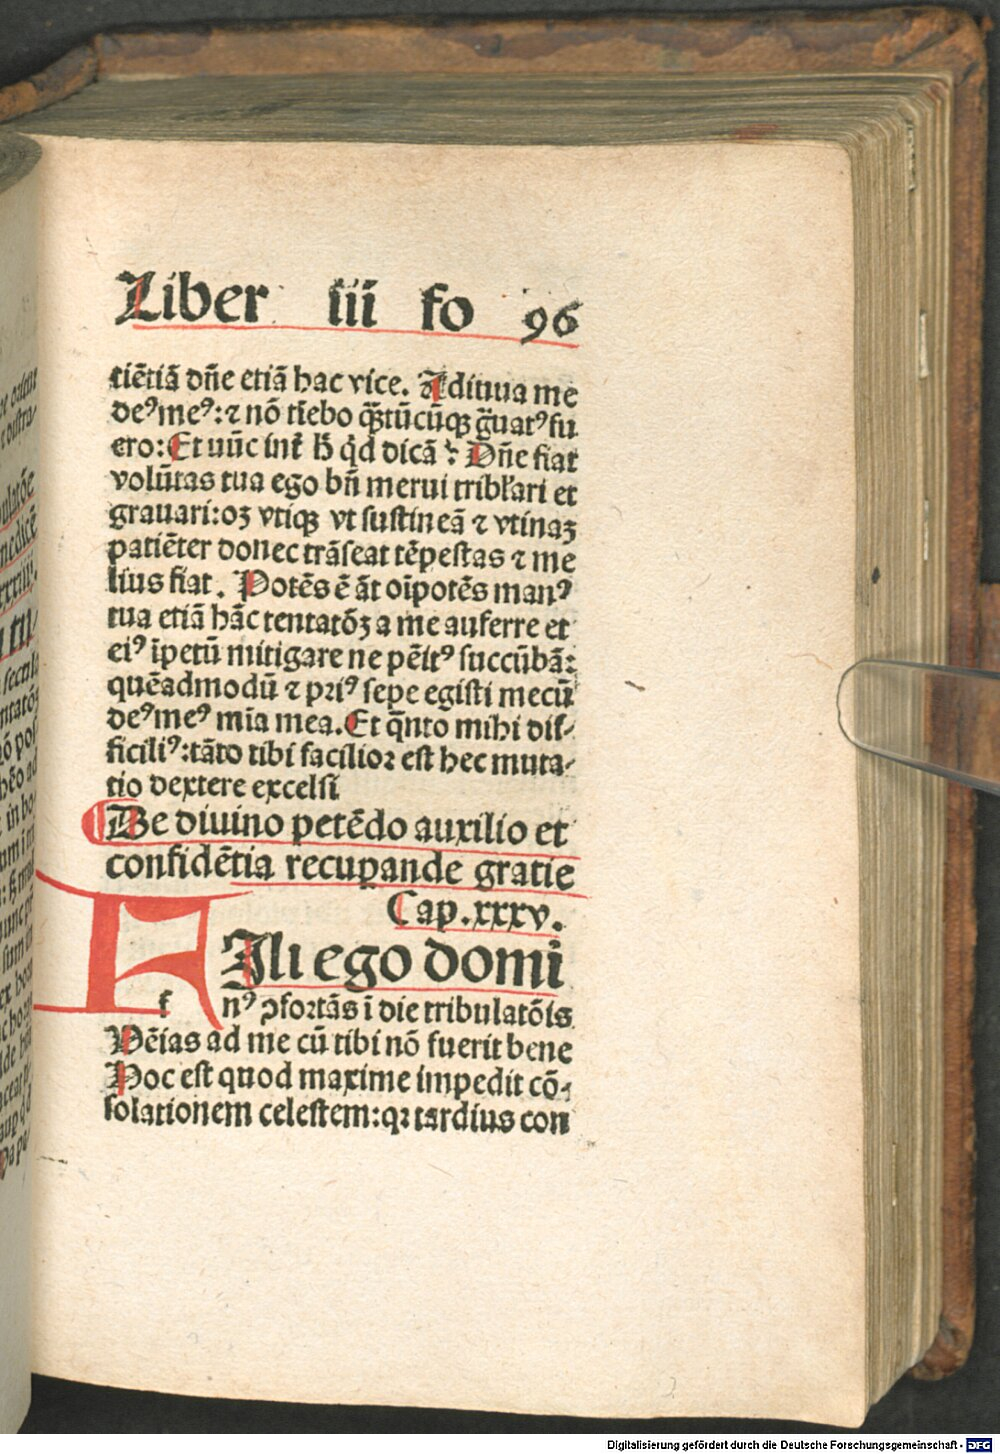 Liber iii fo 96
tiētiā dñe etiā hac vice. Adiuua me
deꝰmeꝰ: ⁊ nō tīebo q̈̄tūcūqꝫ g̈uatꝰfu
ero: Et nūc int̄ h̄ qd̓ dicā: Dñe fiat
volūtas tua ego bn̄ merui tribl̄ari et
grauari: oꝫ vtiqꝫ vt sustineā ⁊ vtinaꝫ
patiēter donec trāseat tēpestas ⁊ me
lius fiat. Potēs ē āt oīpotēs manꝰ
tua etiā hāc tentatōꝫ a me auferre et
eiꝰ īpetū mitigare ne pēitꝰ succūbā:
quēadmodū ⁊ pꝛiꝰ sepe egisti mecū
deꝰmeꝰ mīa mea. Et q̄nto mihi dif-
ficiliꝰ: tāto tibi facilioꝛ est hec muta-
tio dextere excelsi
De diuino petēdo auxilio et
confidētia recuꝑande gratie
Cap. xxxv.
Ili ego domi
f nꝰ ꝯfortās ī die tribulatōis
Uēias ad me cū tibi nō fuerit bene
Hoc est quod maxime impedit cō-
solationem celestem: qꝛ tardius con
Digitalisierung gefördert durch die Deutsche Forschungsgemeinschaft - DFG